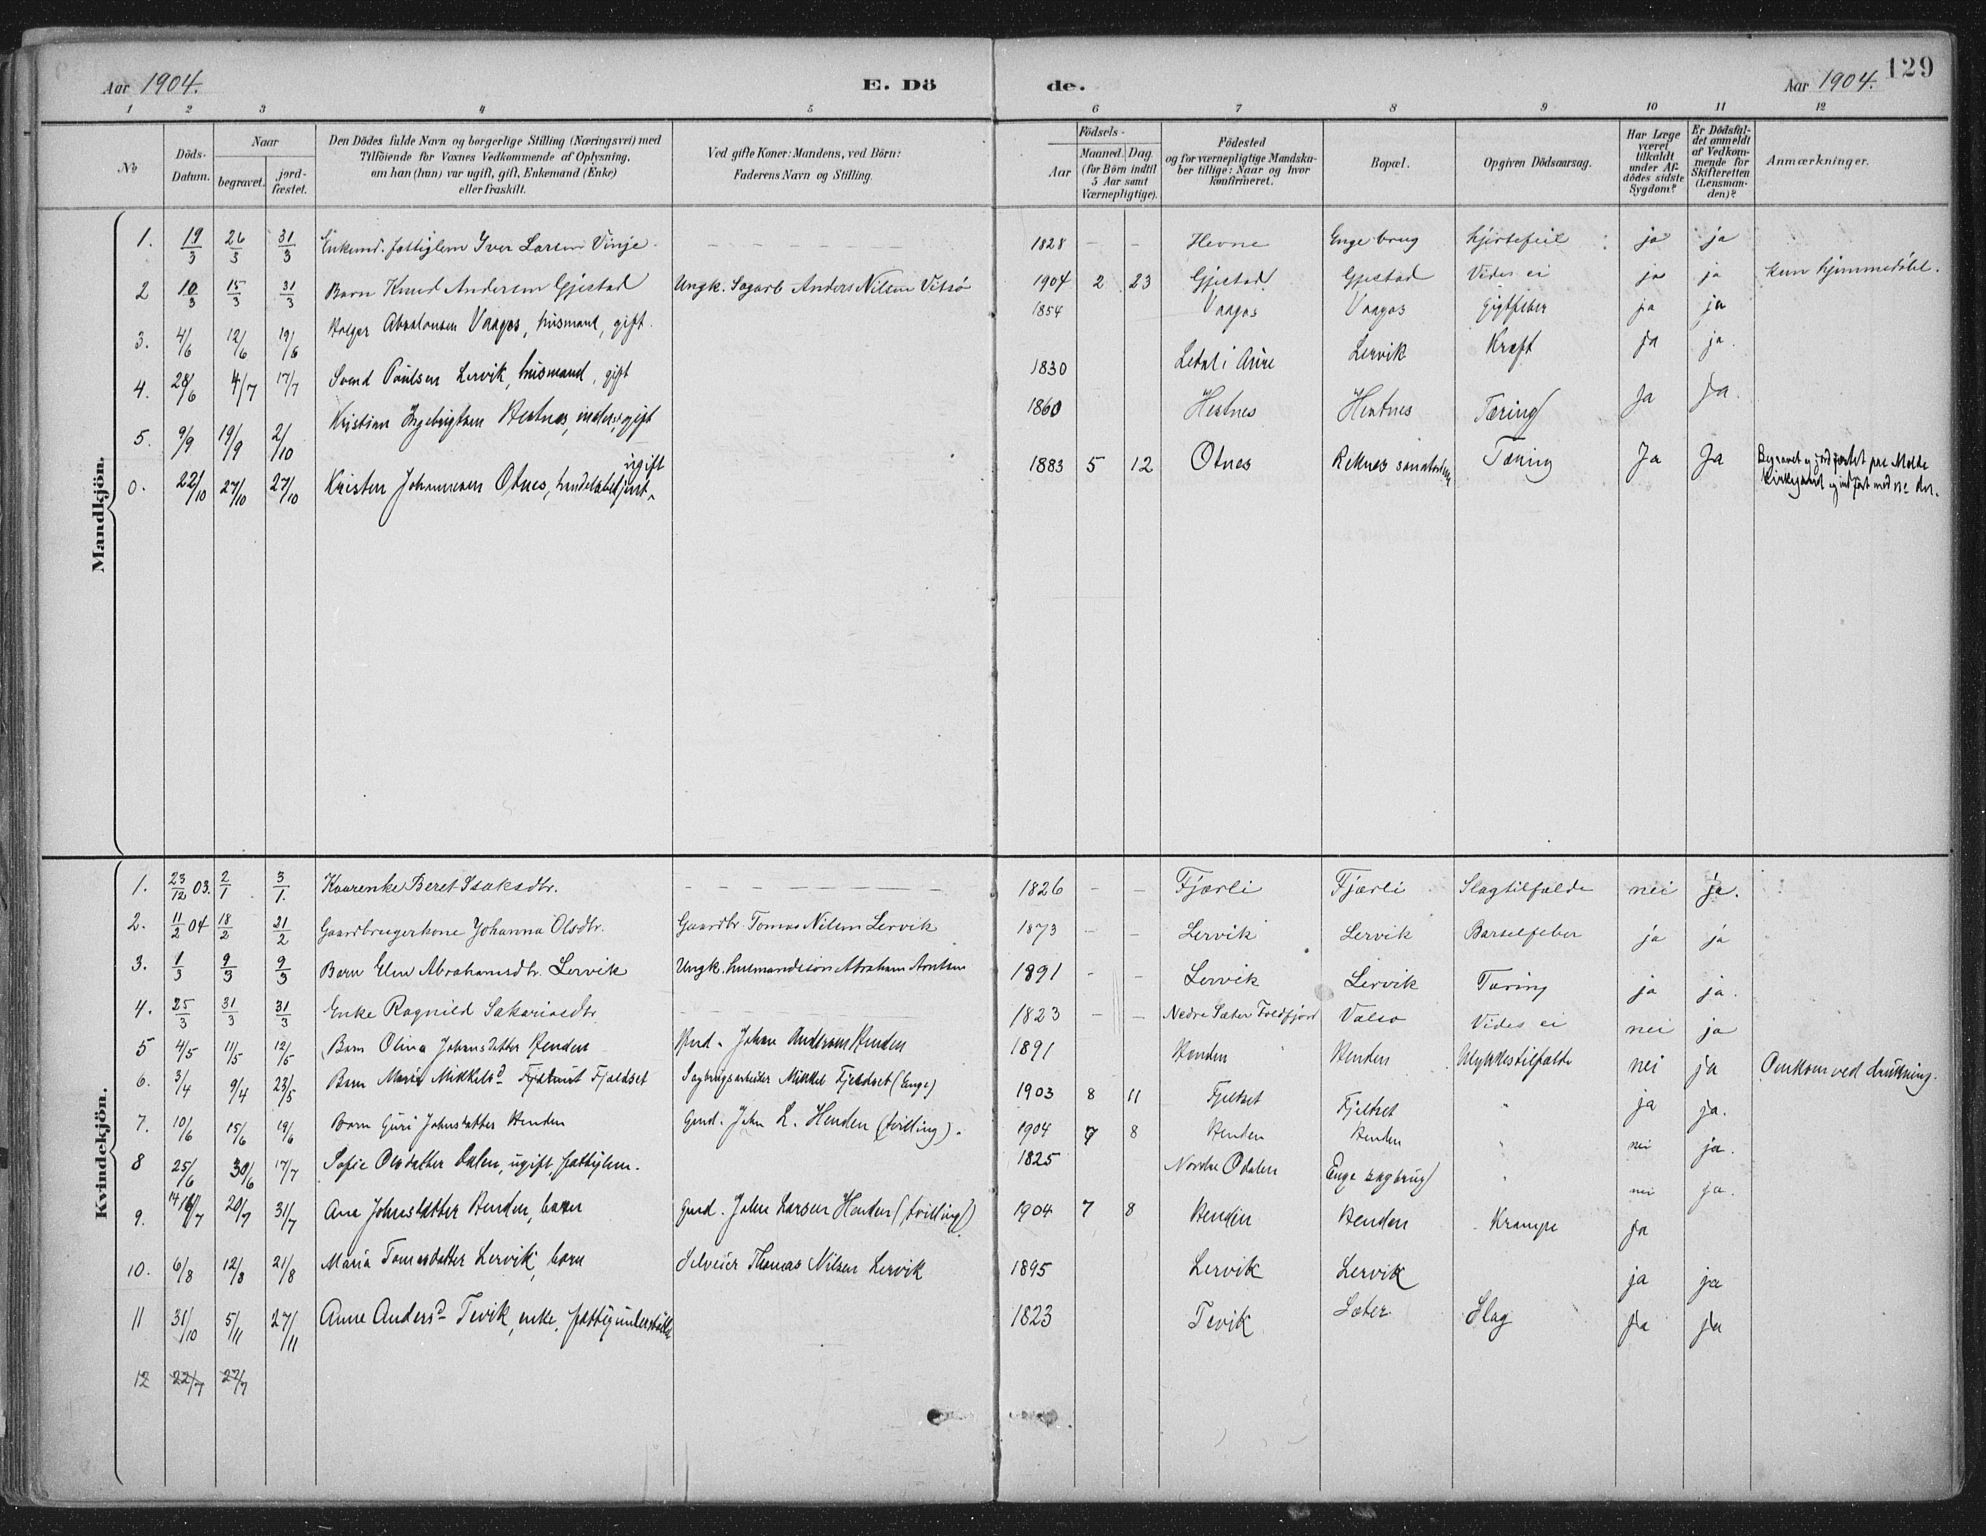 129
Aar 1904. E. Dö de. Aar 1904.
1 2 3 4 5 6 7 8 9 10 11 12
No Döds-Datum. Naar begravet. jord-fæstet. Den Dödes fulde Navn og borgerlige Stilling (Næringsvei) med Tilföiende for Voxnes Vedkommende af Oplysning, om han (hun) var ugift, gift, Enkemand (Enke) eller fraskilt. Ved gifte Koner: Mandens, ved Börn: Faderens Navn og Stilling. Födsels- Aar Maaned. Dag. (for Börn indtil 5 Aar samt Værnepligtige). Födested og for værnepligtige Mandskaber tillige: Naar og hvor konfirmeret. Bopæl. Opgiven Dödsaarsag. Har Læge været tilkaldt under Afdödes sidste Sygdom? Er Dödsfaldet anmeldt af Vedkommende for Skifteretten (Lensmanden)? Anmærkninger.
Mandkjön.
1. 19/3 26/3 31/3 Enkemd. fattiglem Iver Larsen Vinje - 1828 - - Hevne Enge brug hjertefeil ja ja
2 10/3 15/3 31/3 Barn Knud Andersen Gjestad Ungk. Sagarb Anders Nilsen Vitsø 1904 2 23 Gjestad Gjestad Vides ei ja ja kun hjemmedøbt.
3. 4/6 12/6 19/6 Holger Absalonsen Vaagos, husmand, gift. 1854 Vaagos Vaagos Gigtfeber ja ja
4. 28/6 4/7 17/7 Svend Poulsen Lervik, husmand, gift 1830 Letal i Aure Lervik Kræft ja ja.
5. 9/9 19/9 2/10 Kristian Ingebrigtsen Hestnes, inderst, gift 1860 Hestnes Hestnes Tæring Ja Ja.
0. 22/10 27/10 27/10 Kristen Johannesen Otnes, handelsbetjent, ugift 1883 5 12 Otnes Reknes sanatorium Tæring Ja Ja Begravet og jordfæstet paa Molde kirkegaard og indført med no der.
Kvindekjön.
1. 23/12 03. 2/1 3/1. Kaarenke Beret Isaksdtr. - 1826 - - Fjærli Fjærli Slagtilfælde nei ja.
2. 11/2 04 18/2 21/2 Gaardbrugerkone Johanna Olsdtr. Gaardbr. Tomas Nilsen Lervik 1873 - - Lervik Lervik Barselfeber ja ja
3. 1/3 9/3 9/3 Barn Elen Abrahamsdtr. Lervik Ungk. husmandssøn Abraham Arntsen 1891 - - Lervik Lervik Tæring ja ja.
4. 25/3 31/3 31/3 Enke Ragnild Sakariasdtr. - 1823 - - Nedre Sæter Foldfjord Valsø Vides ei nei ja
5 4/5 11/5 12/5 Barn Olina Johansdatter Henden Johan Anderson Henden 1891 Henden Henden Ulykkestilfælde nei ja Omkom ved drukning.
6. 3/4 9/4 23/5 Barn Maria Mikkelsd Fjeldset Sagbrugsarbeider Mikkel Fjeldset (Enge) 1903 8 11 Fjeldset Fjeldset " ja ja.
7. 10/6 15/6 19/6 Barn Guri Johnsdatter Henden Gmd. John L. Henden (tvilling). 1904 7 8 Henden Henden " nei ja.
8 25/6 30/6 17/7 Sofie Olsdatter Dalen, ugift, fattiglem. 1825 Nordre Odalen Enge sagbrug " nei ja.
9. 14/7 20/7 31/7 Ana Johnsdatter Henden, barn Gmd. John Larsen Henden (tvilling) 1904 7 8 Henden Henden Krampe ja
10. 6/8 12/8 21/8 Maria Tomasdatter Lervik, barn Selveier Thomas Nilsen Lervik 1895 Lervik Lervik ja ja
11 31/10 5/11 27/11 Anne Andersd Tevik, enke, fattigunderstøttet 1823 Tevik Sæter Slag ja ja
12 22/7 27/7